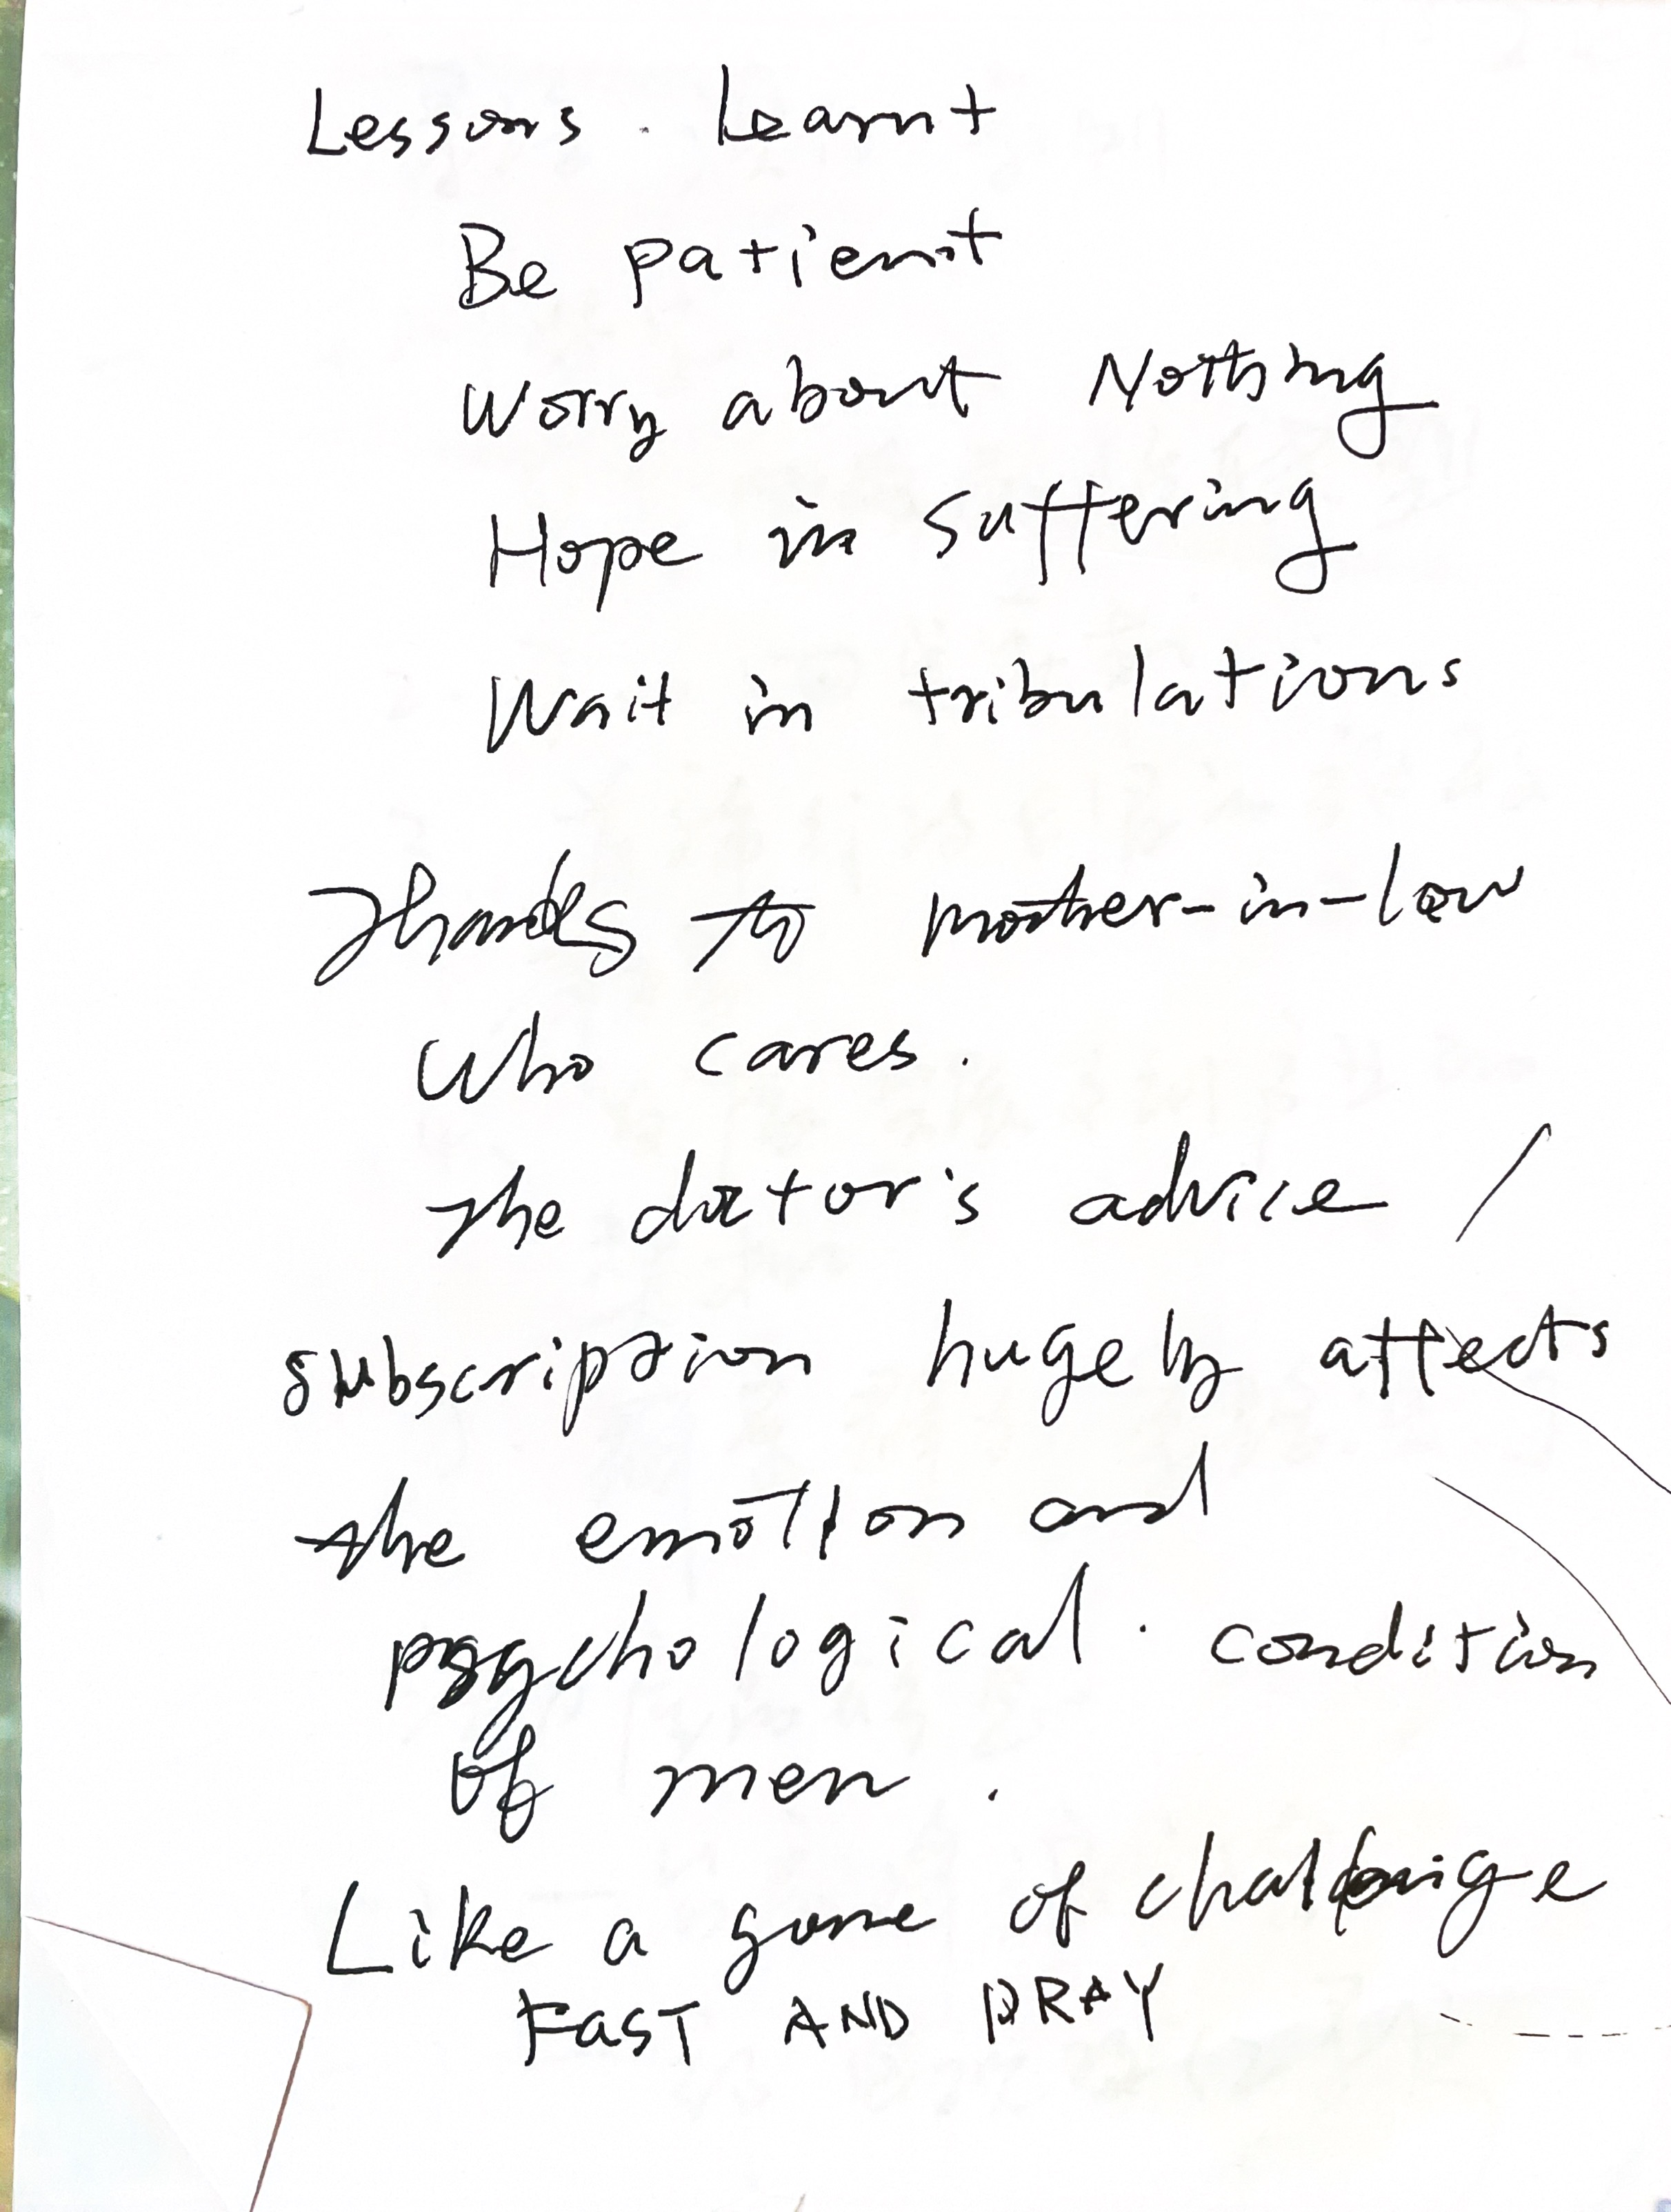 Lessons. Learnt
Be patient
Worry about Nothing
Hope in suffering
Wait in tribulations
Thanks to mother-in-law
who cares.
The doctor's advice /
subscription hugely affects
the emotion and
psychological. condition
of men.
Like a game of challenge
FAST AND PRAY